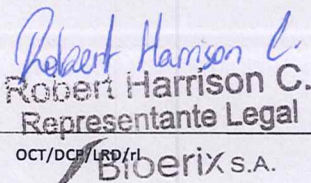 Robert Harrison C.
Robert Harrison C.
Representante Legal
OCT/DCP/LRD/rl
Bioerix S.A.